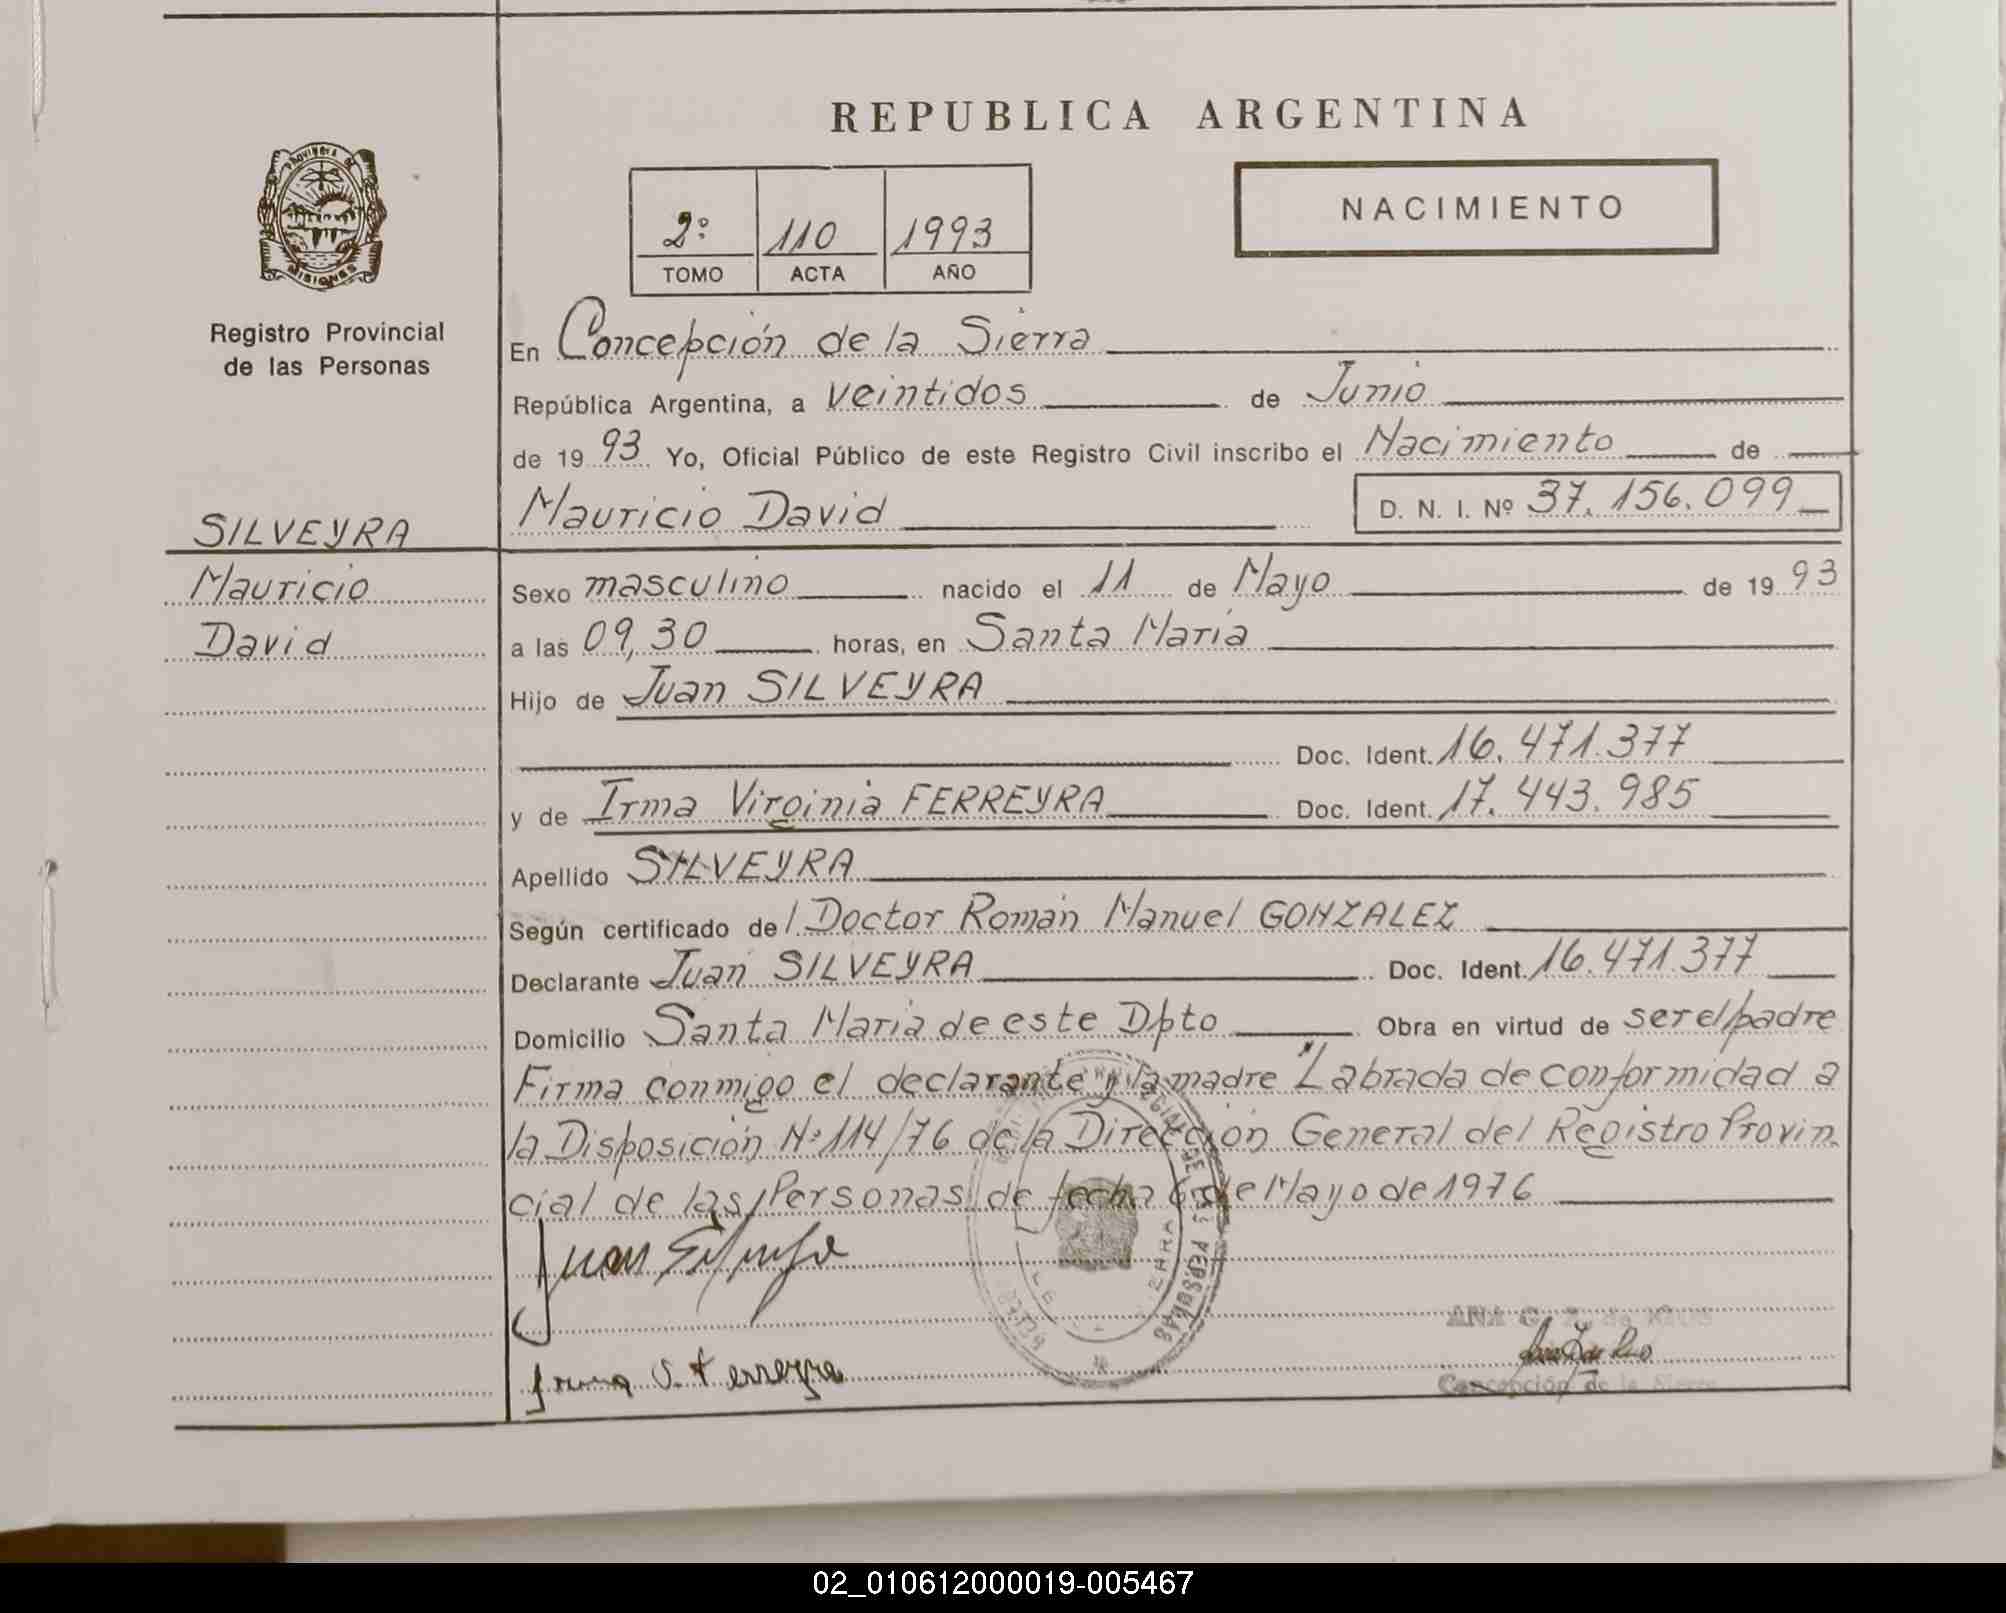 REPUBLICA ARGENTINA
PROVINCIA DE
MISIONES
Registro Provincial
de las Personas
2º 110 1993
TOMO ACTA AÑO
NACIMIENTO
En Concepción de la Sierra
República Argentina, a veintidos de Junio
de 1993 Yo, Oficial Público de este Registro Civil inscribo el Nacimiento de
Mauricio David D. N. I. Nº 37.156.099
SILVEYRA
Mauricio
David
Sexo masculino nacido el 11 de Mayo de 1993
a las 09,30 horas, en Santa María
Hijo de Juan SILVEYRA
Doc. Ident. 16.471.377
y de Irma Virginia FERREYRA Doc. Ident. 17.443.985
Apellido SILVEYRA
Según certificado de l Doctor Román Manuel GONZALEZ
Declarante Juan SILVEYRA Doc. Ident. 16.471.377
Domicilio Santa María de este Dpto Obra en virtud de ser el padre
Firma conmigo el declarante y la madre "Labrada de conformidad a
la Disposición Nº 114/76 de la Dirección General del Registro Provin
cial de las Personas de fecha 6 de Mayo de 1976
Juan Silveyra
DE LAS PERSONAS
ANA G. Z. de RIOS
Irma V. Ferreyra
Concepción de la Sierra
02_010612000019-005467